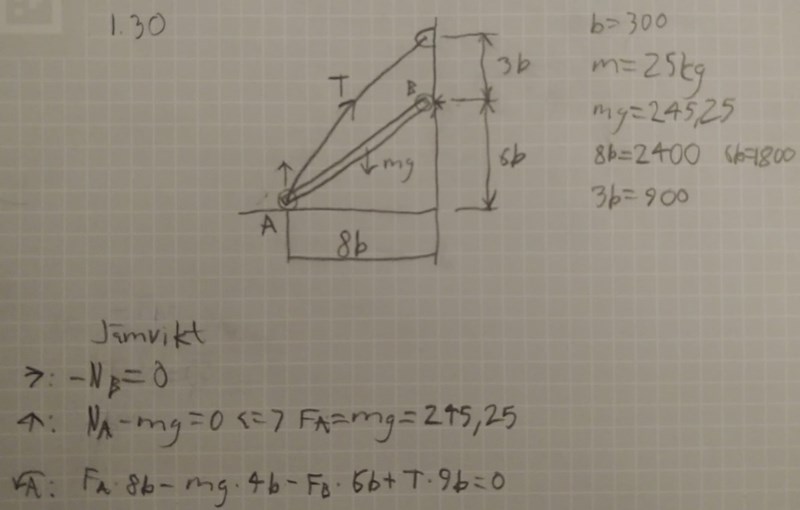 1.30
b=300
m=25kg
mg=245,25
8b=2400 6b=1800
3b=900
T
B
3b
mg
6b
A
8b
Jämvikt
→: -N_B=0
↑: N_A-mg=0 <=> F_A=mg=245,25
A: F_A·8b-mg·4b-F_B·6b+T·9b=0